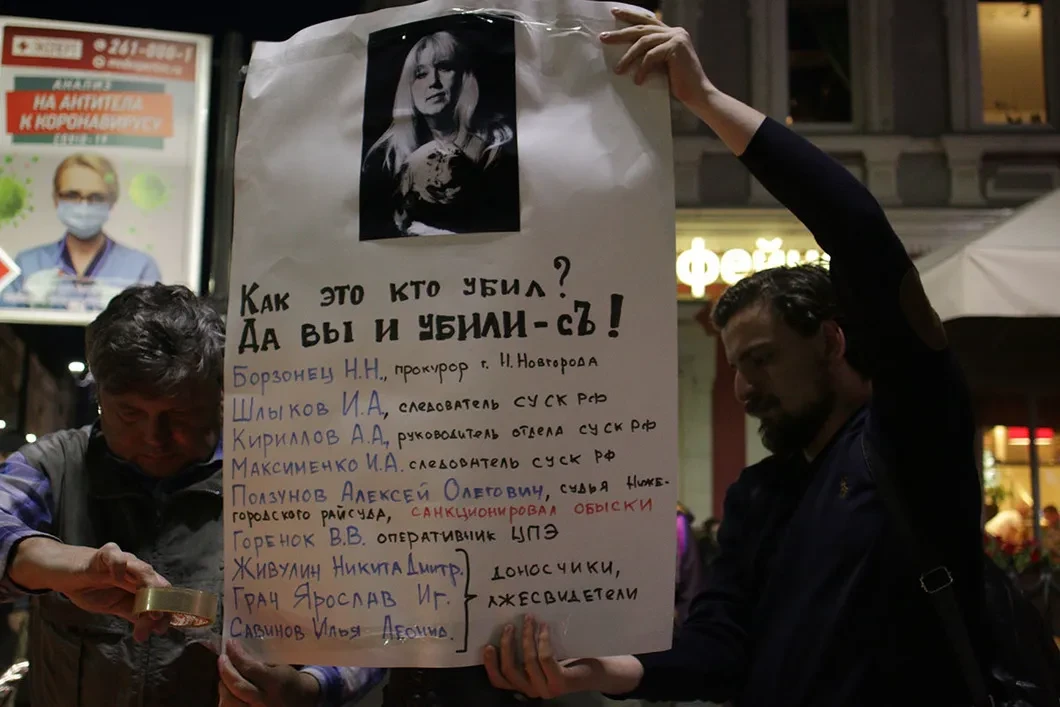 261-000-1
АНАЛИЗ
НА АНТИТЕЛА
К КОРОНАВИРУСУ
COVID-19
Как это кто убил?
Да вы и убили-съ!
Борзонец Н.Н., прокурор г. Н.Новгорода
Шлыков И.А, следователь СУ СК РФ
Кириллов А.А, руководитель отдела СУ СК РФ
Максименко И.А. следователь СУ СК РФ
Ползунов Алексей Олегович, судья Ниже-
городского райсуда, санкционировал обыски
Горенок В.В. оперативчик ЦПЭ
Живулин Никита Дмитр.
Грач Ярослав Иг.
Савинов Илья Леонид.
доносчики,
лжесвидетели
фейн